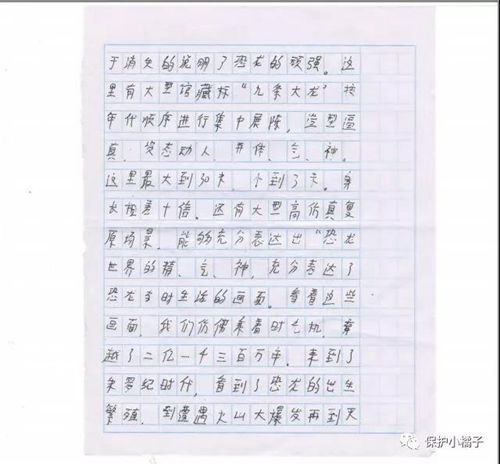 于消失的说明了恐龙的顽强。这
里有大型馆藏标“九条大龙”按
年代顺序进行集中展陈，造型逼
真，姿态动人，并体、气、神。
这里最大到30米，个到了米，身
长相差十倍。还有大型高仿真复
原场景，能够充分表达出“恐龙
世界的精、气、神，充分表达了
恐龙当时生活的画面。看着这些
画面，我们仿佛乘着时光机，穿
越了二亿一千三百万年，来到了
朱罗纪时代，看到了恐龙的出生
繁殖，到遭遇火山大爆发再到灭
保护小橘子